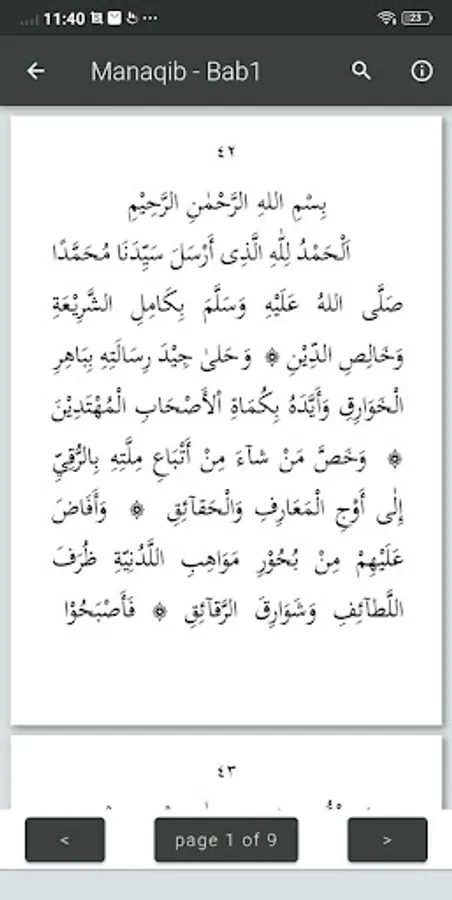 11:40
23
Manaqib - Bab1
٤٢
بِسْمِ اللهِ الرَّحْمٰنِ الرَّحِيْمِ
اَلْحَمْدُ لِلّٰهِ الَّذِى أَرْسَلَ سَيِّدَنَا مُحَمَّدًا
صَلَّى اللهُ عَلَيْهِ وَسَلَّمَ بِكَامِلِ الشَّرِيْعَةِ
وَخَالِصِ الدِّيْنِ ۞ وَحَلىٰ جِيْدَ رِسَالَتِهِ بِبَاهِرِ
الْخَوَارِقِ وَأَيَّدَهُ بِكُمَاةِ اْلأَصْحَابِ الْمُهْتَدِيْنَ
۞ وَخَصَّ مَنْ شآءَ مِنْ أَتْبَاعِ مِلَّتِهِ بِالرُّقِيِّ
إِلٰى أَوْجِ الْمَعَارِفِ وَالْحَقآئِقِ ۞ وَأَفَاضَ
عَلَيْهِمْ مِنْ بُحُوْرِ مَوَاهِبِ اللَّدُنِيّةِ ظُرَفَ
اللَّطآئِفِ وَشَوَارِقَ الرَّقآئِقِ ۞ فَأَصْبَحُوْا
٤٣
< page 1 of 9 >